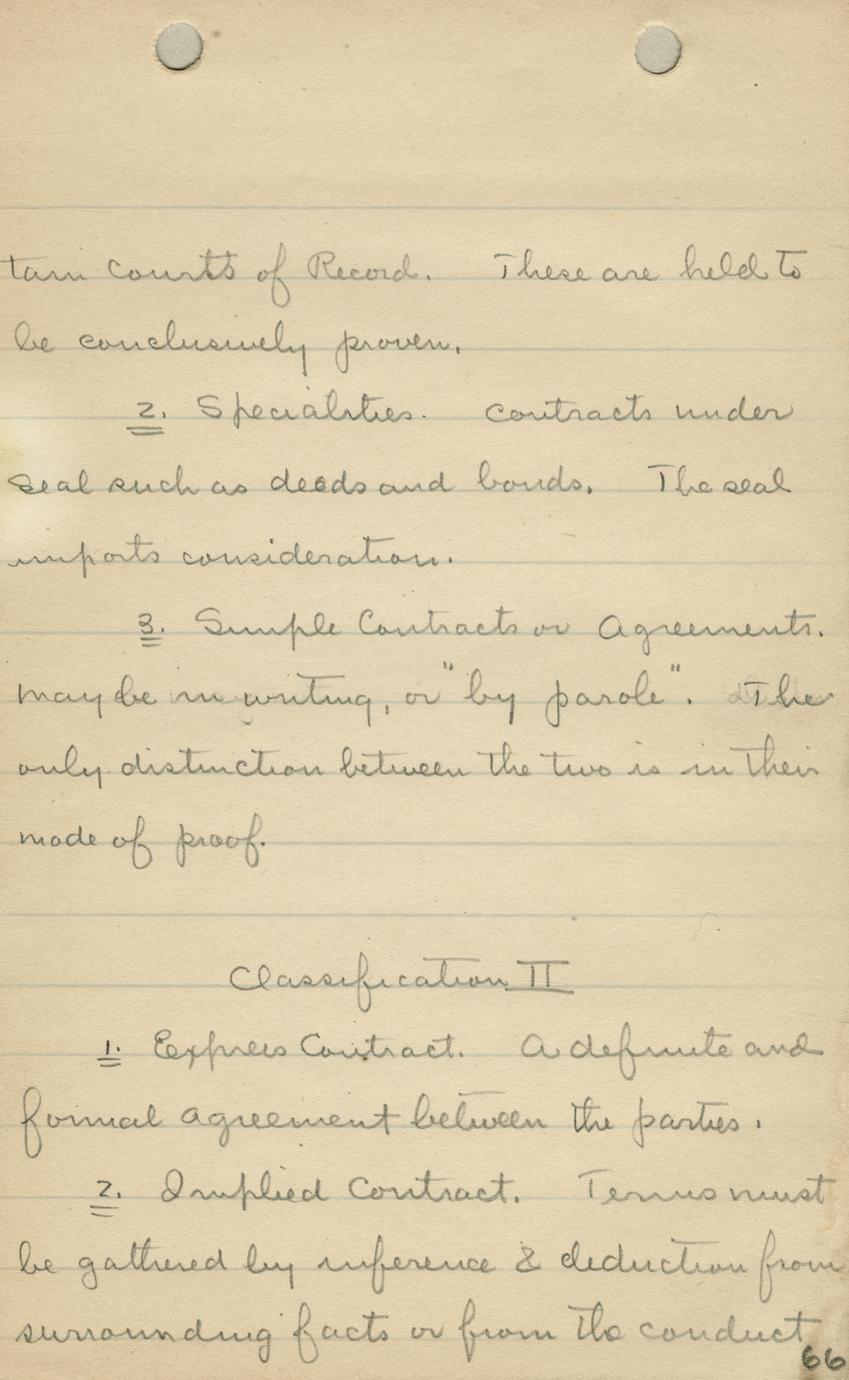 tain Courts of Record. These are held to
be conclusively proven.
2. Specialities. Contracts under
seal such as deeds and bonds. The seal
imports consideration.
3. Simple Contracts or Agreements.
may be in writing, or "by parole". The
only distinction between the two is in their
mode of proof.
Classification II
1. Express Contract. A definite and
formal agreement between the parties.
2. Implied Contract. Terms must
be gathered by inference & deduction from
surrounding facts or from the conduct
66